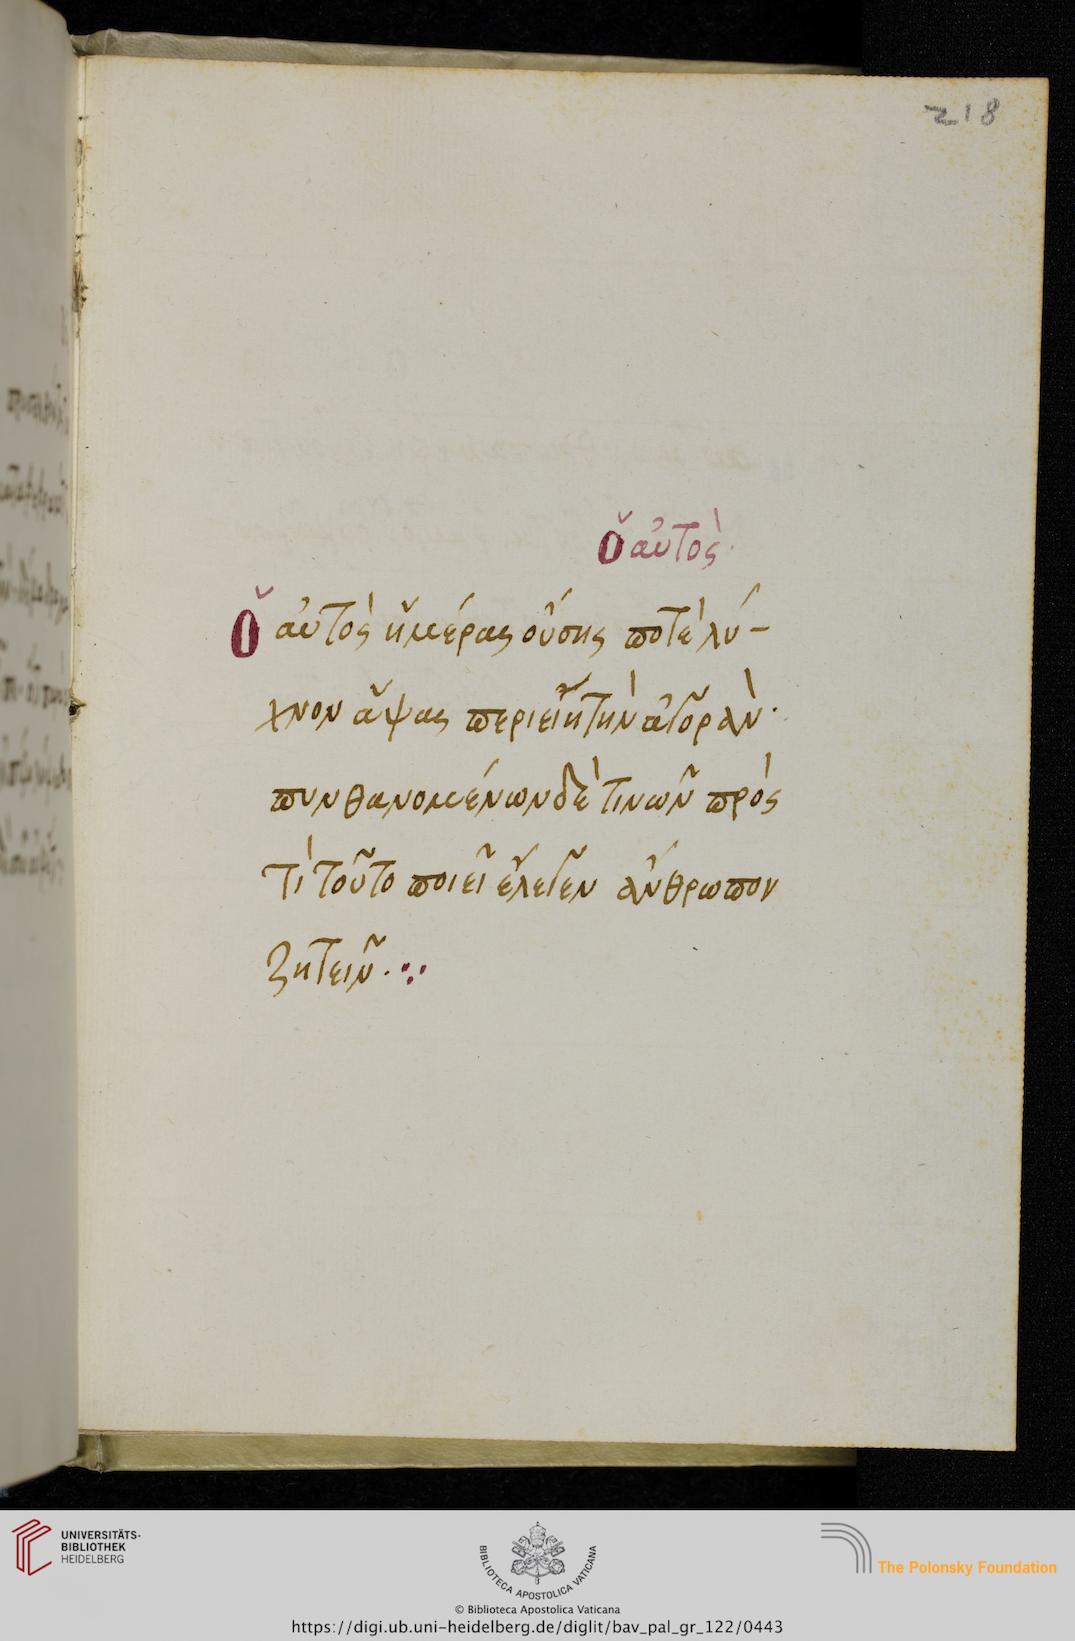 218
Ὁ αὐτὸς
Ὁ αὐτὸς ἡμέρας οὔσης ποτὲ λύ-
χνον ἅψας περιείῃ τὴν ἀγορὰν·
πυνθανομένων δὲ τινῶν πρός
τὶ τοῦτο ποιεῖ ἔλεγεν ἄνθρωπον
ζητεῖν.
UNIVERSITÄTS-
BIBLIOTHEK
HEIDELBERG
BIBLIOTECA APOSTOLICA VATICANA
The Polonsky Foundation
© Biblioteca Apostolica Vaticana
https://digi.ub.uni-heidelberg.de/diglit/bav_pal_gr_122/0443